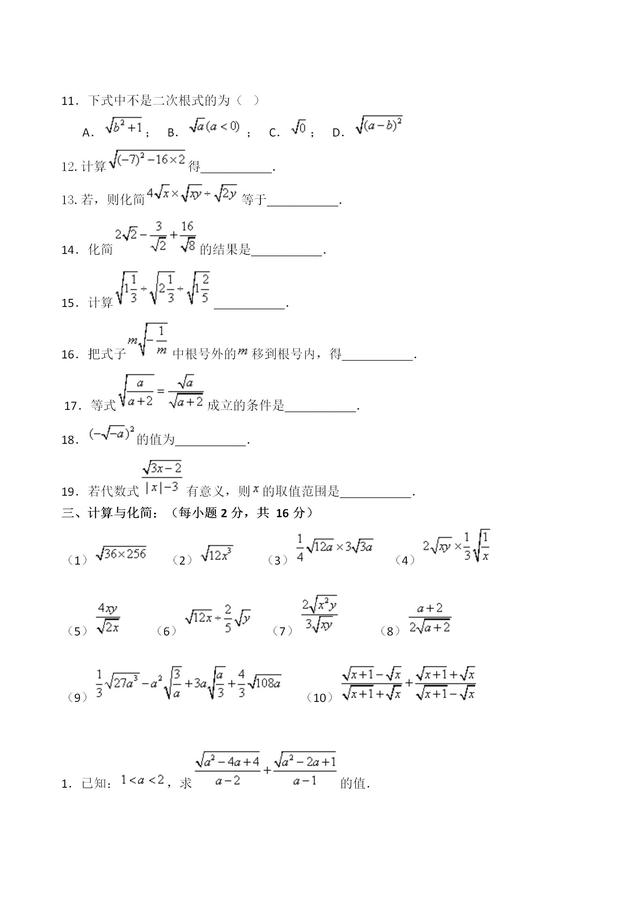 11．下式中不是二次根式的为（ ）
A． √(b²+1)； B． √a(a<0)； C． √0； D． √((a−b)²)
12.计算√((−7)²−16×2)得___________．
13.若，则化简4√x×√(xy)÷√(2y) 等于___________．
14．化简2√2−3/√2+16/√8的结果是___________．
15．计算√(1 1/3)÷√(2 1/3)÷√(1 2/5)___________．
16．把式子m√(−1/m) 中根号外的m移到根号内，得___________．
17．等式√(a/(a+2))=√a/√(a+2)成立的条件是___________．
18．(−√(−a))²的值为___________．
19．若代数式√(3x−2)/(|x|−3)有意义，则x的取值范围是___________．
三、计算与化简：（每小题 2 分，共 16 分）
（1）√(36×256) （2）√(12x³) （3）1/4√(12a)×3√(3a) （4）2√(xy)×1/3√(1/x)
（5）4xy/√(2x) （6）√(12x)÷2/5√y （7）2√(x²y)/(3√(xy)) （8）(a+2)/(2√(a+2))
（9）1/3√(27a³)−a²√(3/a)+3a√(a/3)+4/3√(108a) （10）(√(x+1)−√x)/(√(x+1)+√x)+(√(x+1)+√x)/(√(x+1)−√x)
1．已知：1<a<2，求√(a²−4a+4)/(a−2)+√(a²−2a+1)/(a−1)的值．